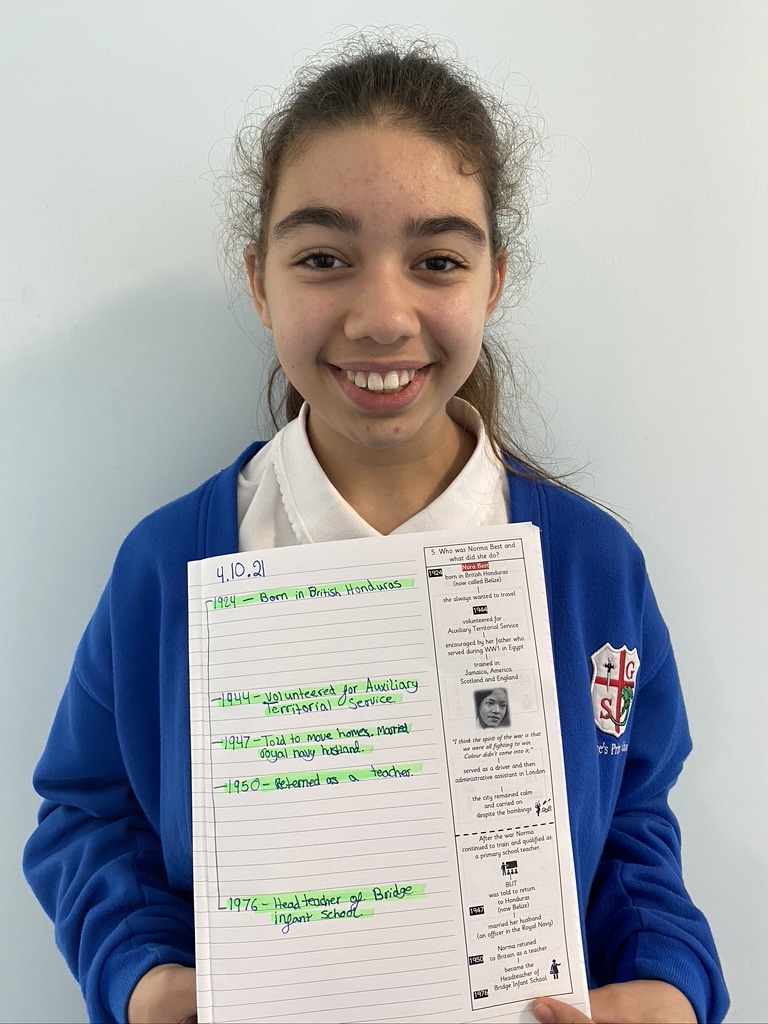 4.10.21
1924 – Born in British Honduras
1944 – Volunteered for Auxiliary
Territorial Service.
1947 – Told to move homes. Married
royal navy husband.
1950 – Returned as a teacher.
1976 – Headteacher of Bridge
infant school.
5. Who was Norma Best and
what did she do?
Nora Best
1924
born in British Honduras
(now called Belize)
she always wanted to travel
1944
volunteered for
Auxiliary Territorial Service
encouraged by her father who
served during WW1 in Egypt
trained in
Jamaica, America
Scotland and England
"I think the spirit of the war is that
we were all fighting to win.
Colour didn't come into it,"
served as a driver and then
administrative assistant in London
the city remained calm
and carried on
despite the bombings
After the war Norma
continued to train and qualified as
a primary school teacher
BUT
was told to return
to Honduras
(now Belize)
1947
married her husband
(an officer in the Royal Navy)
Norma retuned
to Britain as a teacher
1950
became the
Headteacher of
Bridge Infant School
1976
G
S